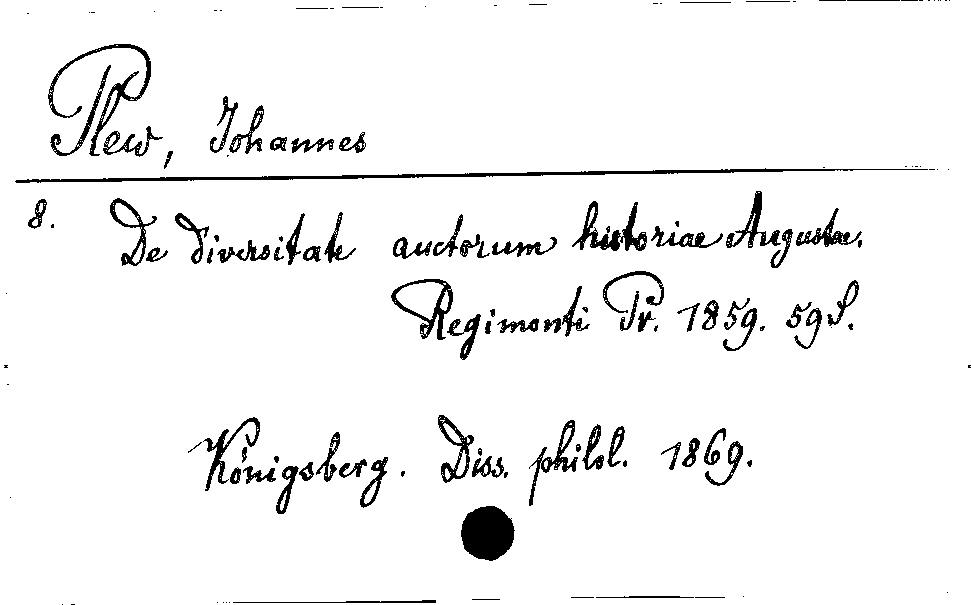 Plew, Johannes
8. De diversitate auctorum historiae Augustae.
Regimonti Pr. 1859. 59 S.
Königsberg. Diss. philol. 1869.